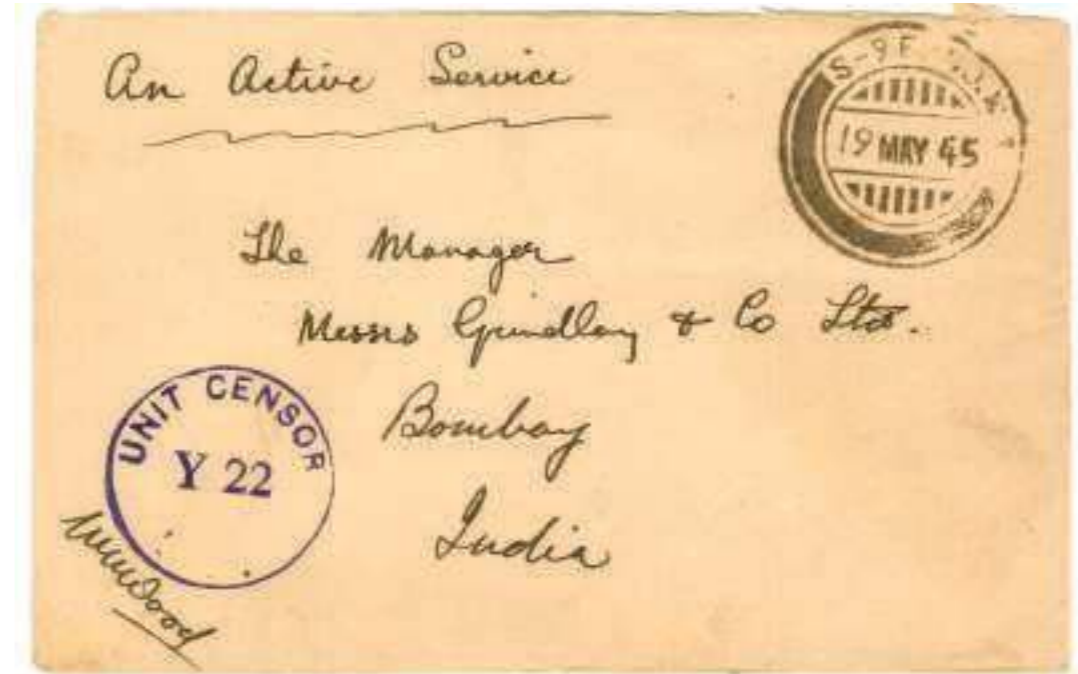 An Active Service
19 MAY 45
The Manager
Messrs Grindlay & Co Ltd.
Bombay
India
UNIT CENSOR
Y 22